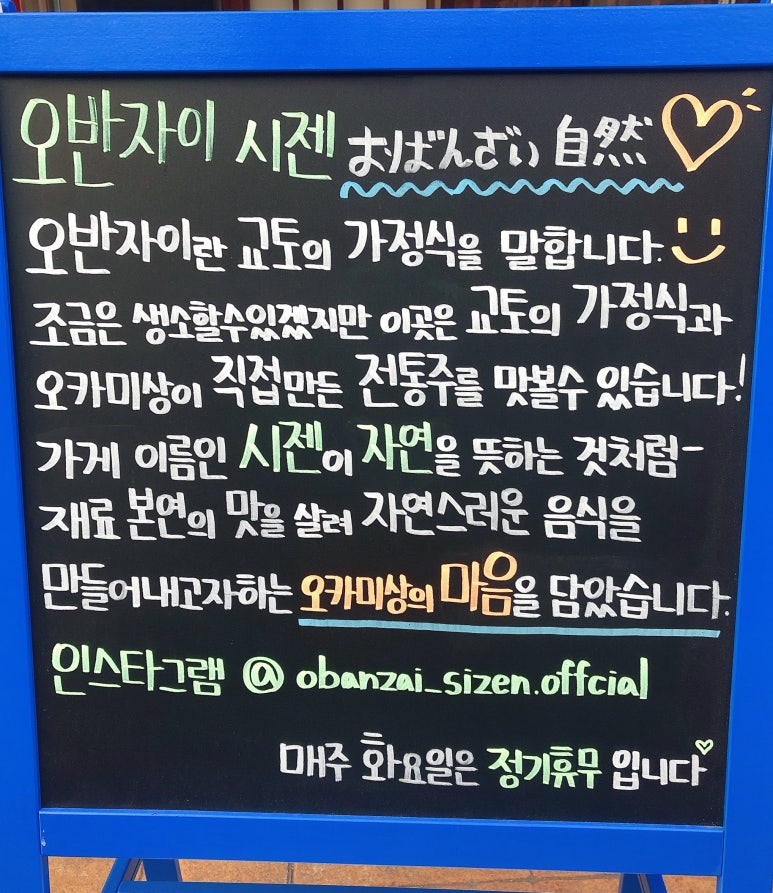 오반자이 시젠 おばんざい 自然
오반자이란 교토의 가정식을 말합니다.
조금은 생소할수있겠지만 이곳은 교토의 가정식과
오카미상이 직접만든 전통주를 맛볼수 있습니다!
가게 이름인 시젠이 자연을 뜻하는 것처럼-
재료 본연의 맛을 살려 자연스러운 음식을
만들어내고자하는 오카미상의 마음을 담았습니다.
인스타그램 @ obanzai_sizen.offcial
매주 화요일은 정기휴무 입니다